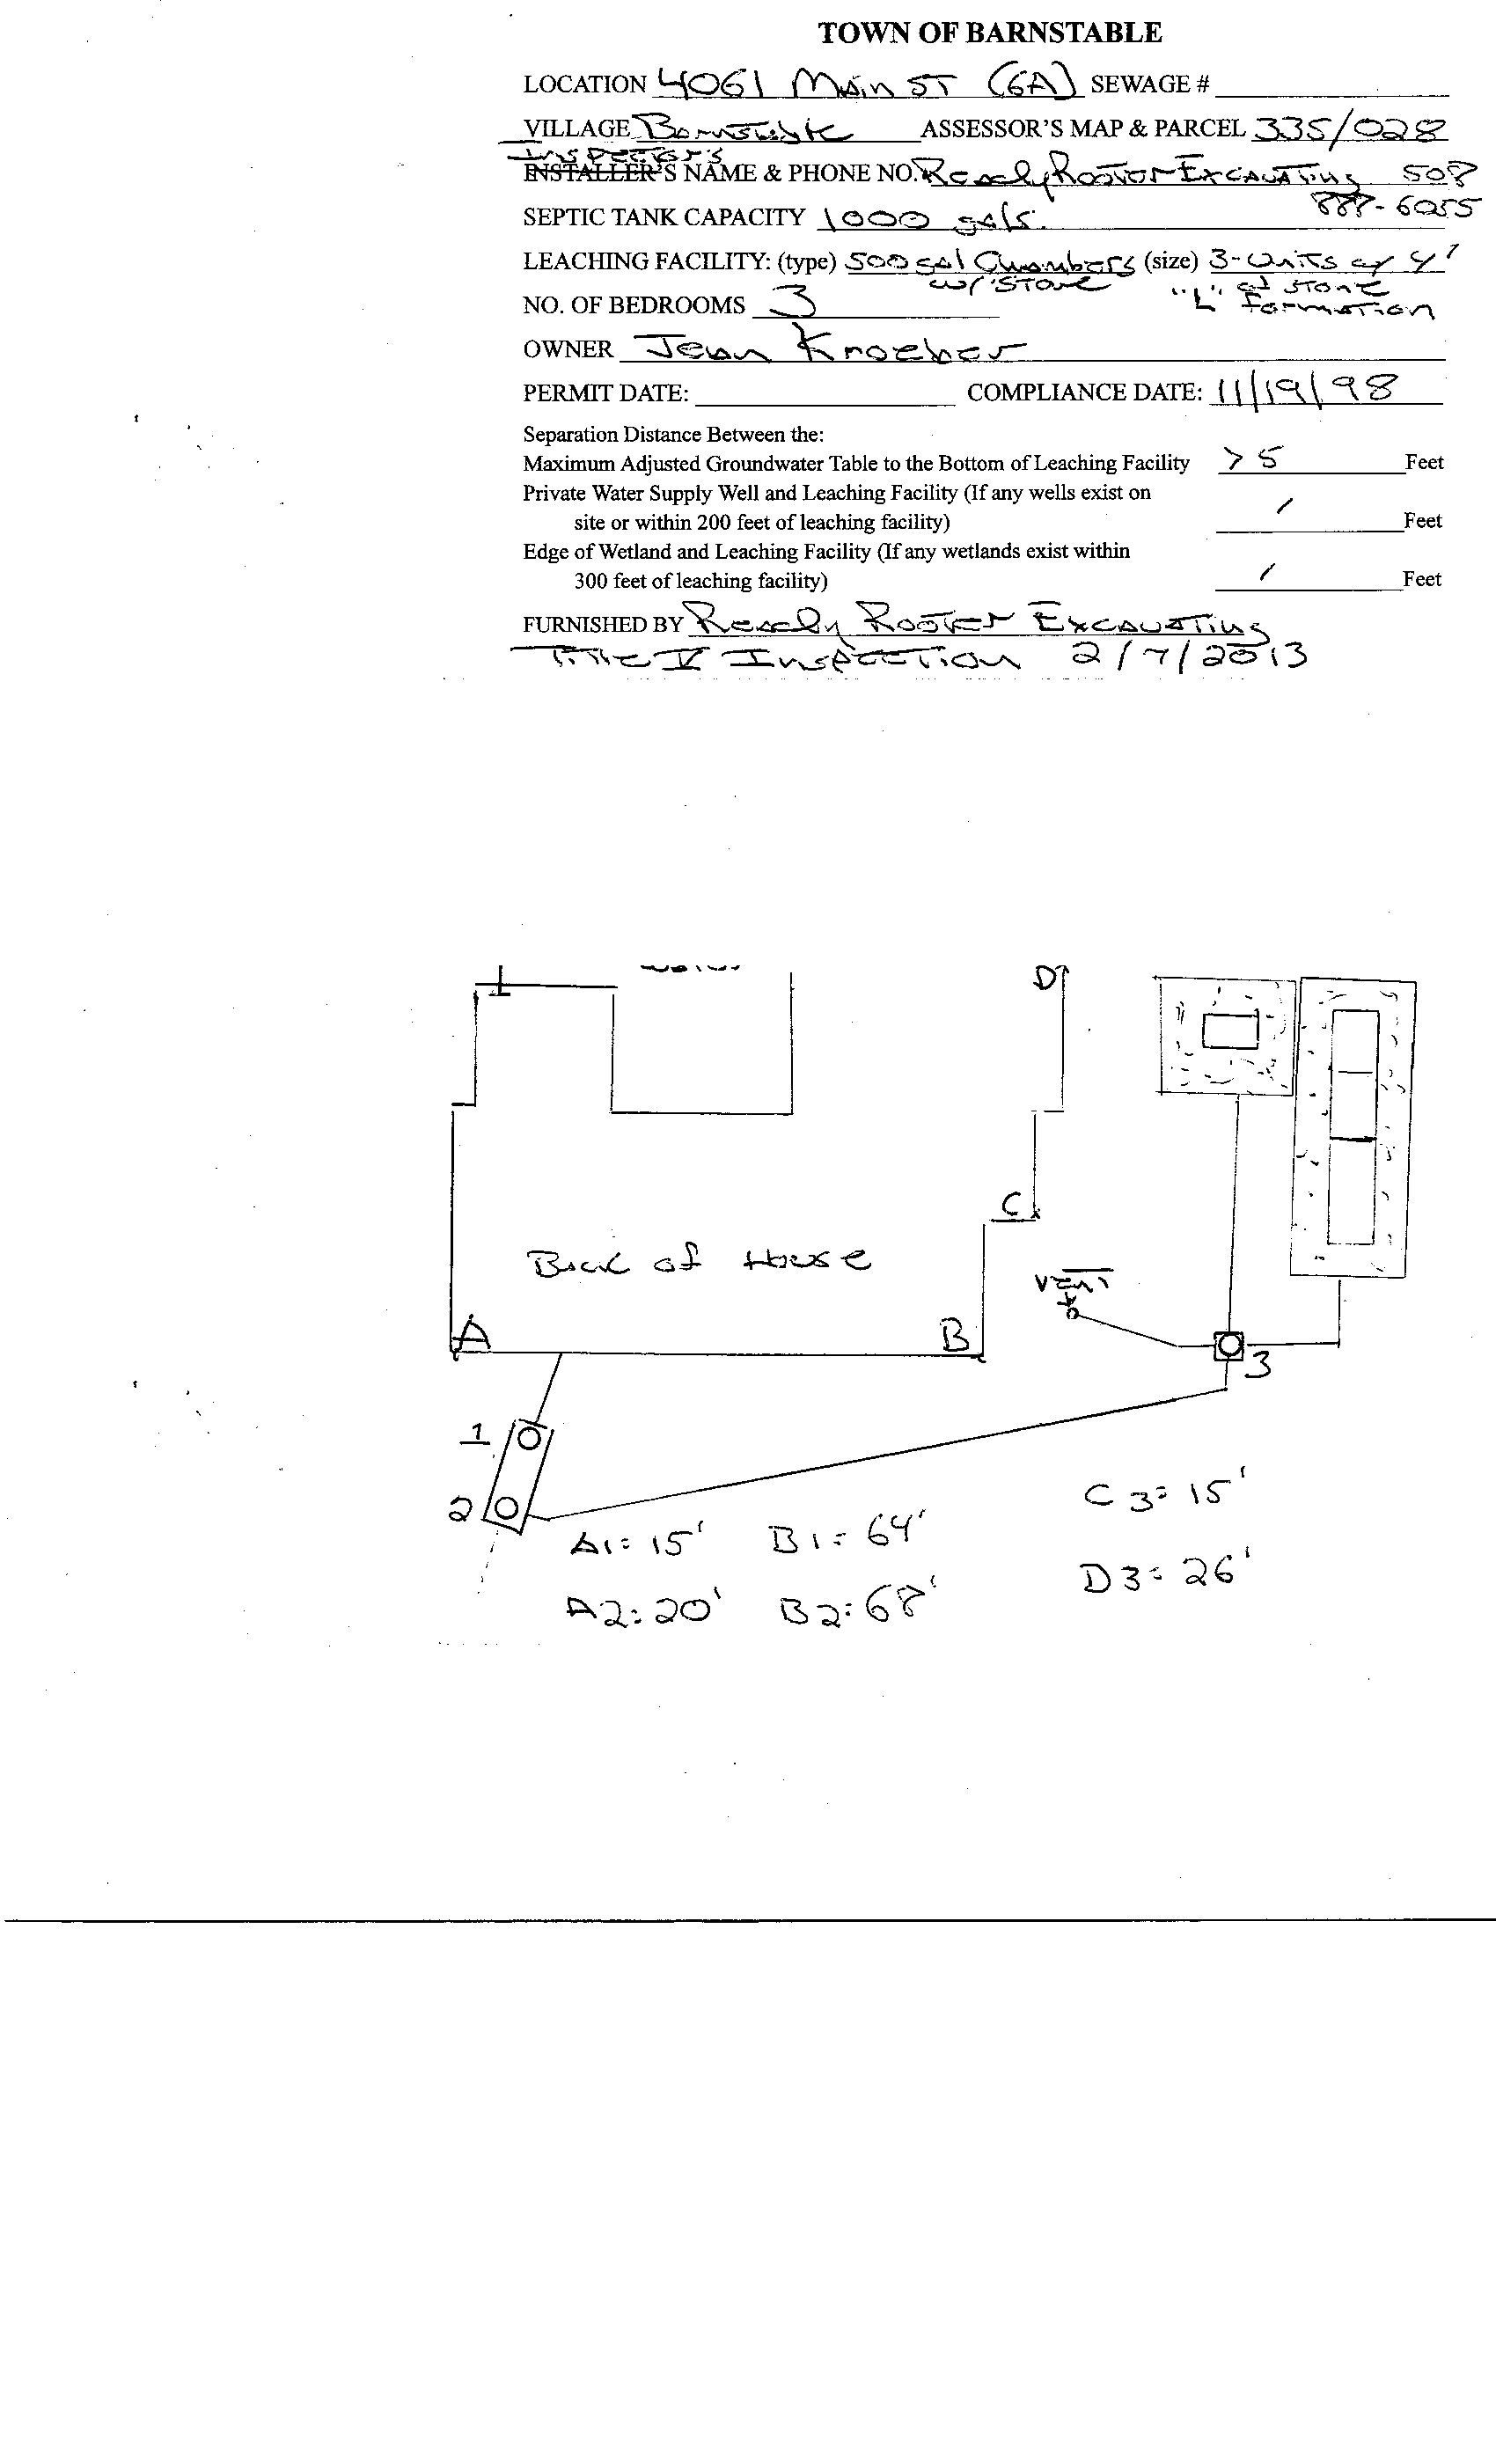 TOWN OF BARNSTABLE
LOCATION 4061 Main ST (6A) SEWAGE #
VILLAGE Barnstable ASSESSOR'S MAP & PARCEL 335/028
Inspector's
INSTALLER'S NAME & PHONE NO. Ready Rooter Excavating 508
888-6055
SEPTIC TANK CAPACITY 1000 gals.
LEACHING FACILITY: (type) 500 gal Chambers (size) 3-Units w/ 4'
w/ STONE of STONE
"L" Formation
NO. OF BEDROOMS 3
OWNER Jean Kroeber
PERMIT DATE: COMPLIANCE DATE: 11/19/98
Separation Distance Between the:
Maximum Adjusted Groundwater Table to the Bottom of Leaching Facility > 5 Feet
Private Water Supply Well and Leaching Facility (If any wells exist on
site or within 200 feet of leaching facility) / Feet
Edge of Wetland and Leaching Facility (If any wetlands exist within
300 feet of leaching facility) / Feet
FURNISHED BY Ready Rooter Excavating
Title V Inspection 2/7/2013
D
C
Back of House
VENT
A
B
3
1
2
A1= 15' B1= 64' C3= 15'
A2: 20' B2: 68' D3= 26'